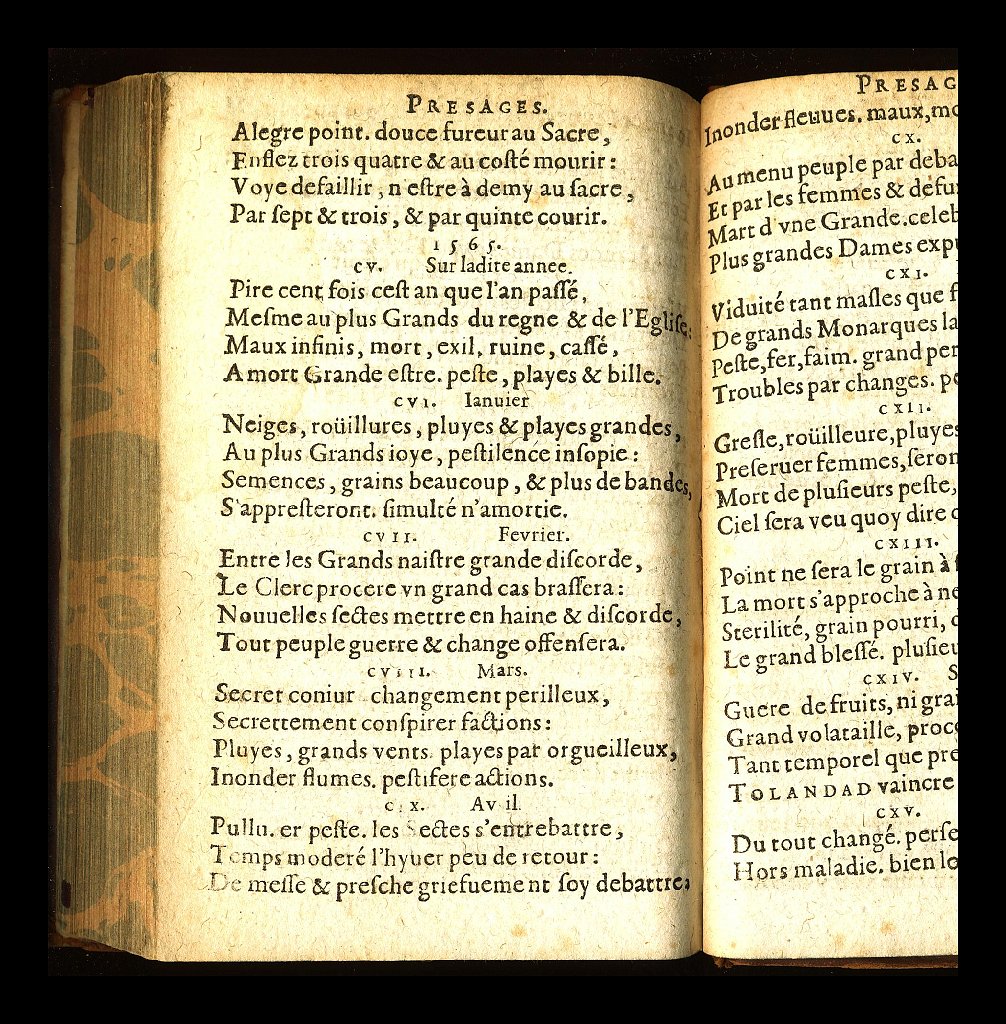 PRESAGES.
Alegre point. douce fureur au Sacre,
Enflez trois quatre & au costé mourir:
Voye defaillir, n estre à demy au sacre,
Par sept & trois, & par quinte courir.
1565.
CV. Sur ladite annee.
Pire cent fois cest an que l'an passé,
Mesme au plus Grands du regne & de l'Eglise:
Maux infinis, mort, exil, ruine, cassé,
A mort Grande estre. peste, playes & bille.
CVI. Ianuier
Neiges, roüillures, pluyes & playes grandes,
Au plus Grands ioye, pestilence insopie:
Semences, grains beaucoup, & plus de bandes,
S'appresteront. simulté n'amortie.
CVII. Fevrier.
Entre les Grands naistre grande discorde,
Le Clerc procere vn grand cas brassera:
Nouuelles sectes mettre en haine & discorde,
Tout peuple guerre & change offensera.
CVIII. Mars.
Secret coniur changement perilleux,
Secrettement conspirer factions:
Pluyes, grands vents. playes par orgueilleux,
Inonder flumes. pestifere actions.
C.X. Av il.
Pullu. er peste. les Sectes s'entrebattre,
Temps moderé l'hyuer peu de retour:
De messe & presche griefuement soy debattre,
PRESAG
Inonder fleuues. maux, mo
CX.
Au menu peuple par deba
Et par les femmes & defu
Mart d vne Grande. celeb
Plus grandes Dames exp
CXI.
Viduité tant masles que f
De grands Monarques la
Peste, fer, faim. grand per
Troubles par changes. pe
CXII.
Gresle, roüilleure, pluyes
Preseruer femmes, seron
Mort de plusieurs peste,
Ciel sera veu quoy dire
CXIII.
Point ne sera le grain à
La mort s'approche à ne
Sterilité, grain pourri,
Le grand blessé. plusieu
CXIV. S
Guere de fruits, ni grai
Grand volataille, proce
Tant temporel que pre
TOLANDAD vaincre
CXV.
Du tout changé. perse
Hors maladie. bien lo